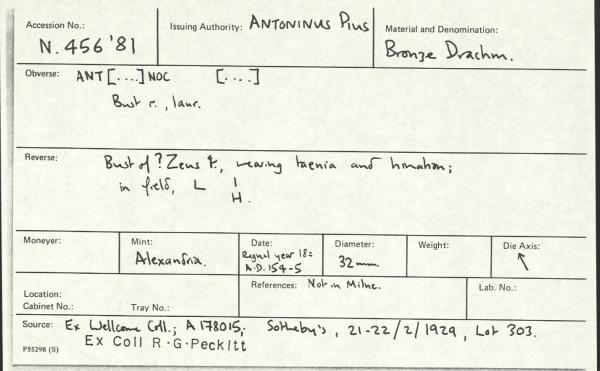 Accession No.: N. 456 '81
Issuing Authority: ANTONINUS PIUS
Material and Denomination: Bronze Drachm.
Obverse: ANT [....] NOC [....]
Bust r., laur.
Reverse: Bust of ? Zeus r., wearing taenia and himation;
in field, L I
H.
Moneyer:
Mint: Alexandria.
Date: Regnal year 18 =
A.D. 154-5
Diameter: 32 mm.
Weight:
Die Axis: ↖
Location:
Cabinet No.: Tray No.:
References: Not in Milne.
Lab. No.:
Source: Ex Wellcome Coll.; A 178015; Sotheby's, 21-22/2/1929, Lot 303.
Ex Coll R.G.Peckitt
P55298 (S)